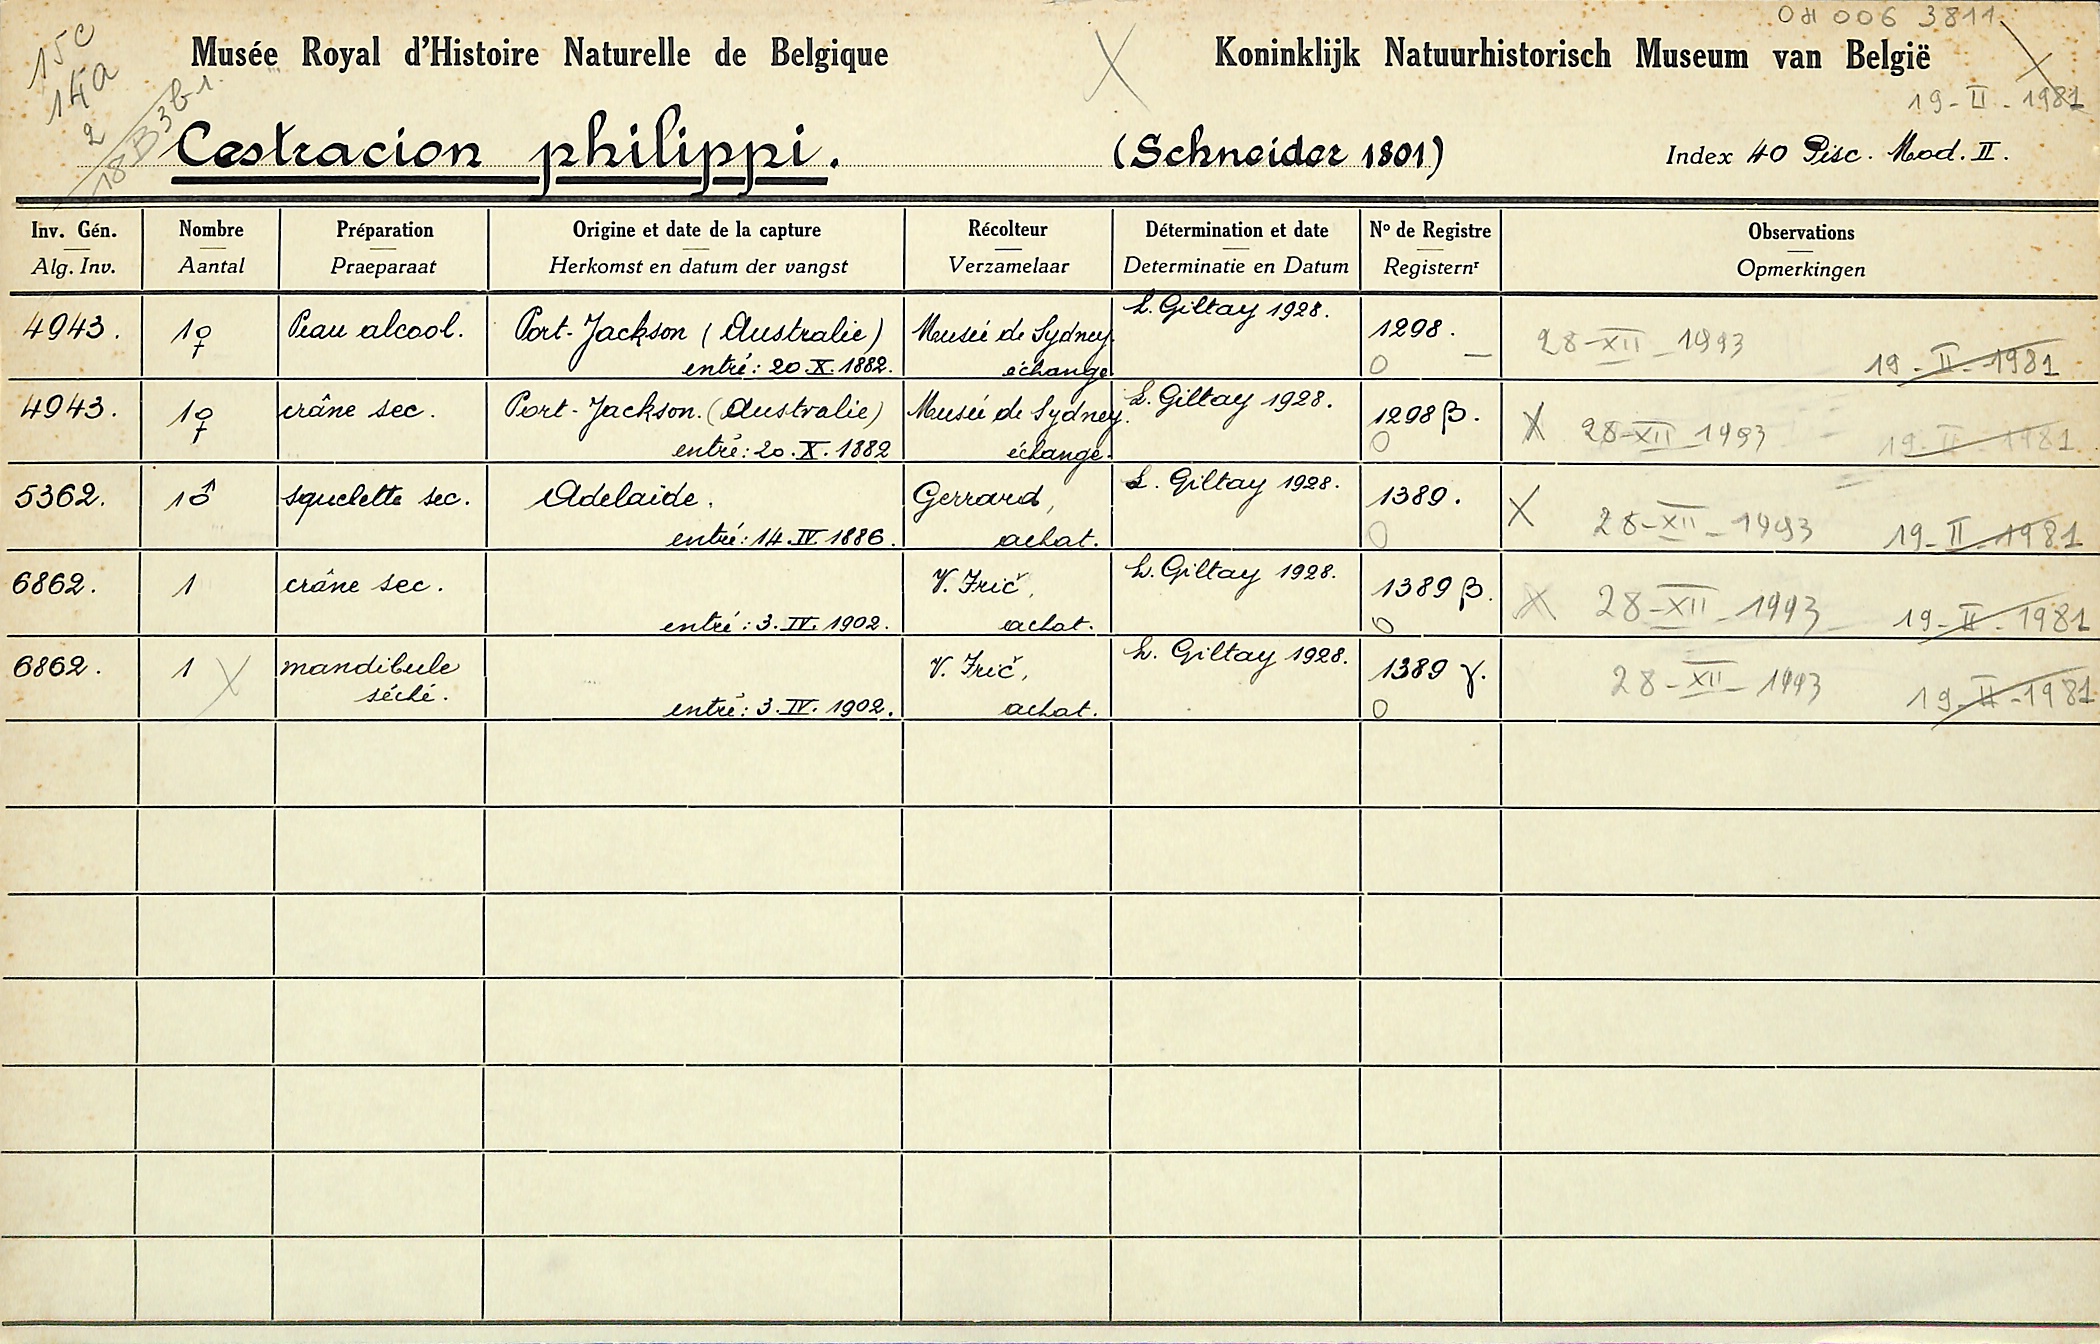 04 006 3811
15c
14a
2
18B3b1.
Musée Royal d'Histoire Naturelle de Belgique
Koninklijk Natuurhistorisch Museum van België
19-II-1981
Cestracion philippi. (Schneider 1801) Index 40 Pisc. Mod. II.
Inv. Gén. Nombre Préparation Origine et date de la capture Récolteur Détermination et date Nº de Registre Observations
Alg. Inv. Aantal Praeparaat Herkomst en datum der vangst Verzamelaar Determinatie en Datum Registernr Opmerkingen
4943. 1♀ Peau alcool. Port-Jackson (Australie) Musée de Sydney L. Giltay 1928. 1298. 28-XII-1993
entré: 20.X.1882. échange. 0 19-II-1981
4943. 1♀ crâne sec. Port-Jackson. (Australie) Musée de Sydney. L. Giltay 1928. 1298 β. X 28-XII-1993
entré: 20.X.1882 échange. 0 19-II-1981
5362. 1♂ squelette sec. Adelaide. Gerrard, L. Giltay 1928. 1389. X 28-XII-1993
entré: 14.IV 1886. achat. 0 19-II-1981
6862. 1 crâne sec. V. Frič, L. Giltay 1928. 1389 β. X 28-XII-1993
entré: 3.IV.1902. achat. 0 19-II-1981
6862. 1 X mandibule V. Frič, L. Giltay 1928. 1389 γ. 28-XII-1993
séché. entré: 3.IV.1902. achat. 0 19-II-1981